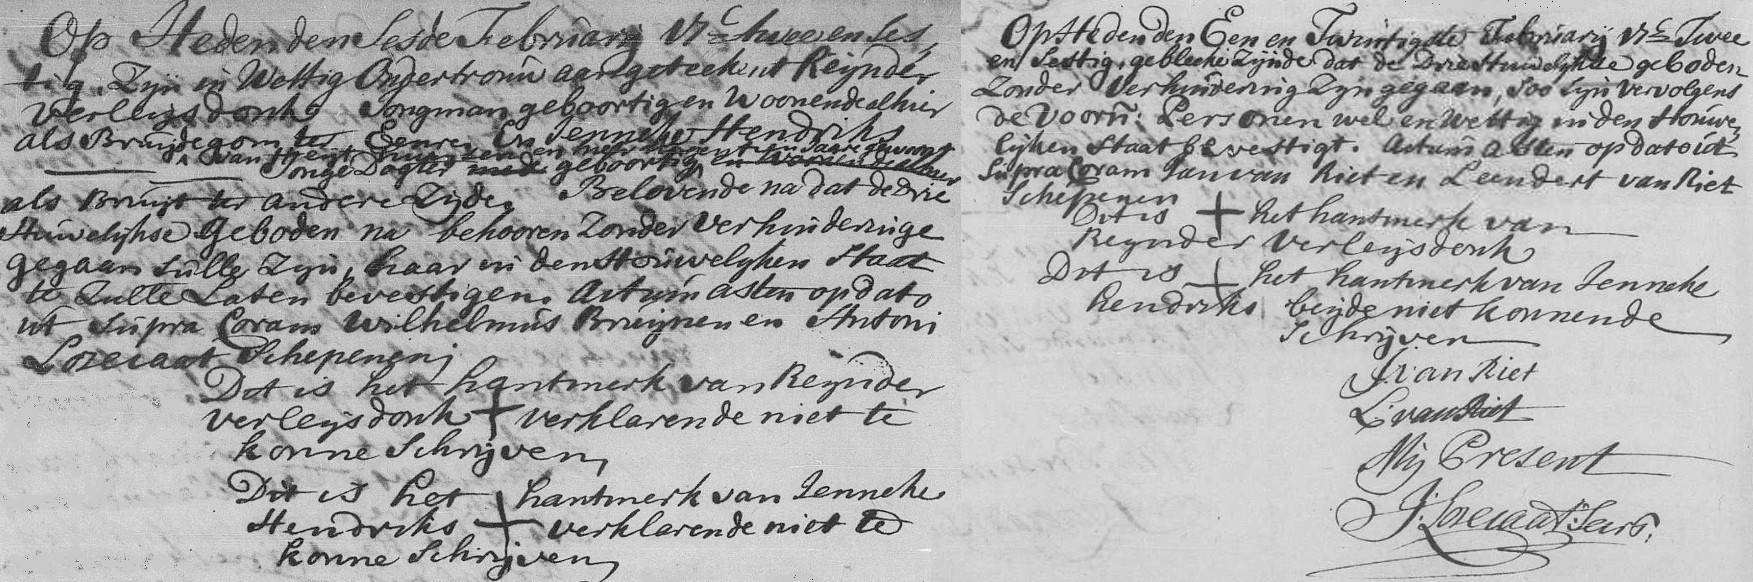 Op Heden den Sesde Februarij 17c twee en Ses,
tig, Zijn in Wettig Ondertrouw aangeteekent Reijnder
Verleijsdonk Jongman geboortig en Woonende alhier
als Bruijdegom ter Eenre, En Jenneke Hendriks
van
Jonge Dogter mede geboortig en Woonende alhier
als Bruijt ter andere Zijde, Belovende na dat de Drie
Huwelijkse Geboden na behooren Zonder verhinderinge
gegaan Sulle Zijn, haar in den Houwelijken Staat
te Zulle Laten bevestigen. Actum Asten op dato
ut Supra Coram Wilhelmus Bruijnen en Antoni
Losecaat Schepenen,
Dit is het hantmerk van Reijnder
Verleijsdonk + verklarende niet te
konne Schrijven,
Dit is het hantmerk van Jenneke
Hendriks + verklarende niet te
konne Schrijven,
Op Heden den Een en Twintigste Februarij 17c Twee
en Sestig, gebleeke Zijnde dat de Drie Huwelijkse geboden
Zonder Verhindering Zijn gegaan, Soo Zijn vervolgens
de Voorn: Personen wel en Wettig in den Houwe,
lijken Staat bevestigt. Actum Asten op dato ut
Supra Coram Jan van Riet en Leendert van Riet
Schepenen
Dit is + het hantmerk van
Reijnder Verleijsdonk
Dit is + het hantmerk van Jenneke
hendriks, beijde niet konnende
Schrijven
J van Riet
L: van Riet
Mij Present
J: Losecaat: Secrs: